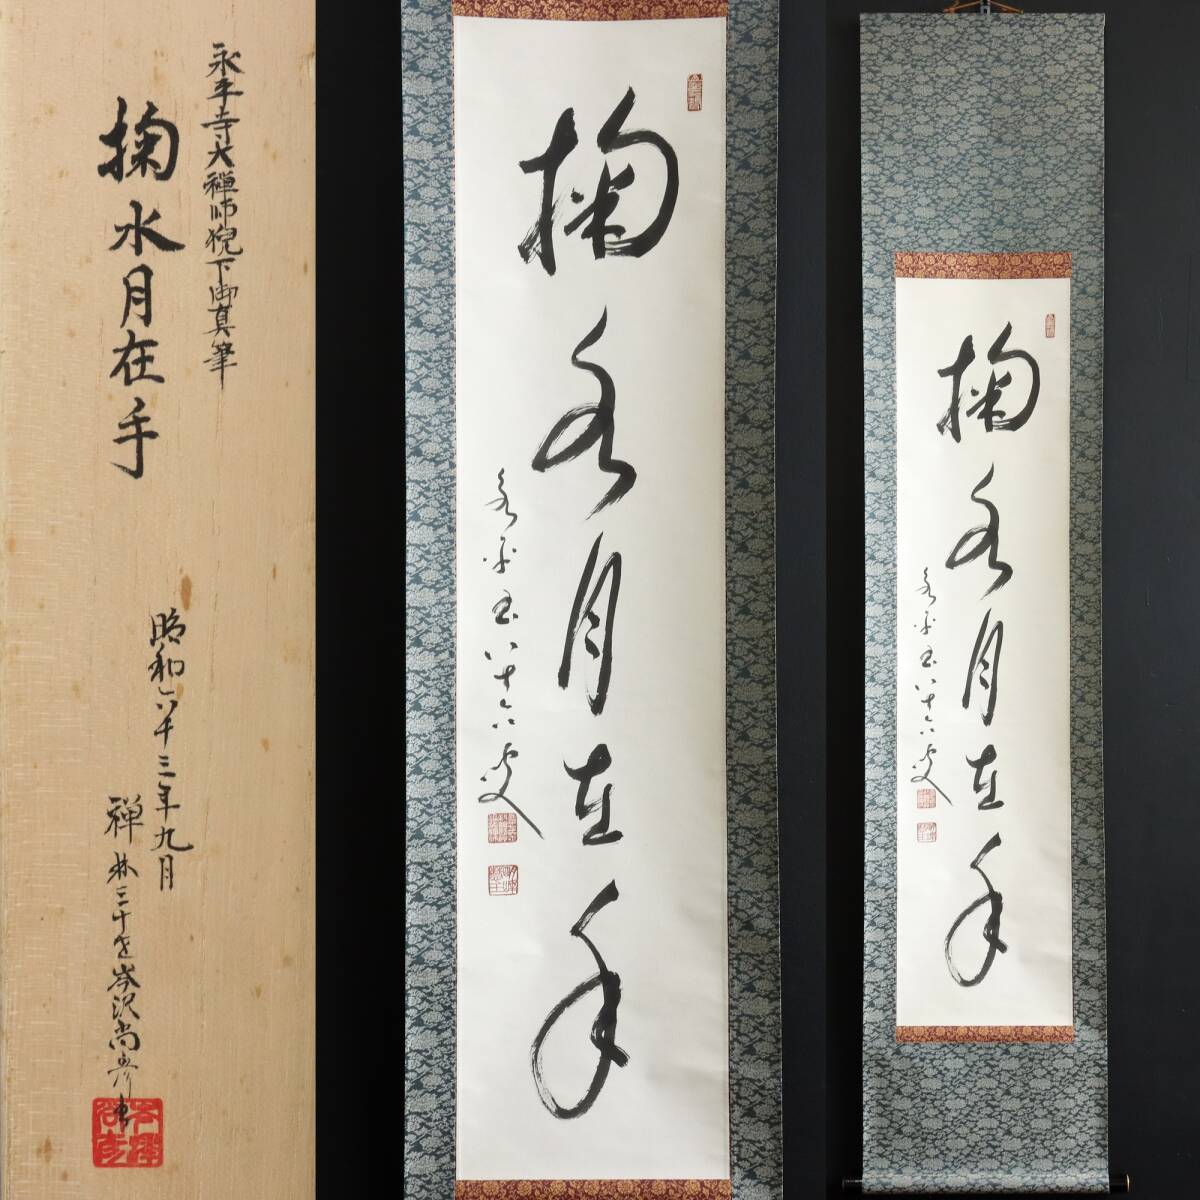 永平寺大禅師猊下御真筆
掬水月在手
昭和六十三年九月
禅林三十世岑沢尚彦書
掬水月在手
永平玄八十六叟
掬水月在手
永平玄八十六叟